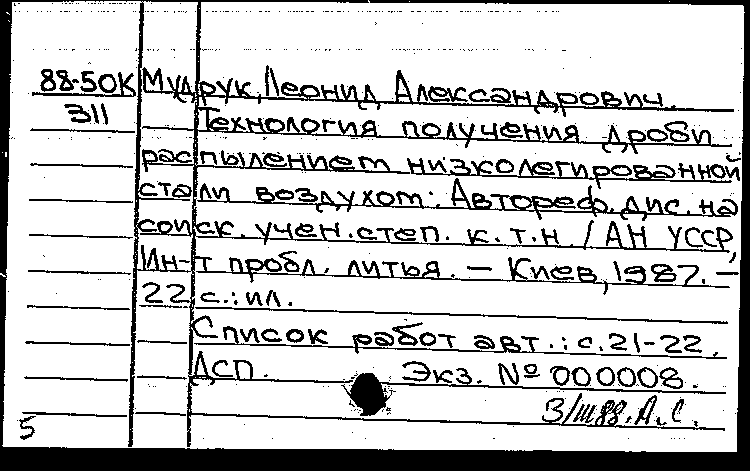 88-50К Мудрук, Леонид Александрович.
311 Технология получения дроби
распылением низколегированной
стали воздухом: Автореф. дис. на
соиск. учен. степ. к.т.н. / АН УССР,
Ин-т пробл. литья. — Киев, 1987. —
22 с.: ил.
Список работ авт.: с. 21-22.
ДСП. Экз. № 000008.
5